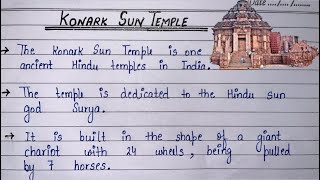 Date ..../..../........
KONARK SUN TEMPLE
→ The Konark Sun Temple is one
ancient Hindu temples in India.
→ The temple is dedicated to the Hindu sun
god Surya.
→ It is built in the shape of a giant
chariot with 24 wheels, being pulled
by 7 horses.